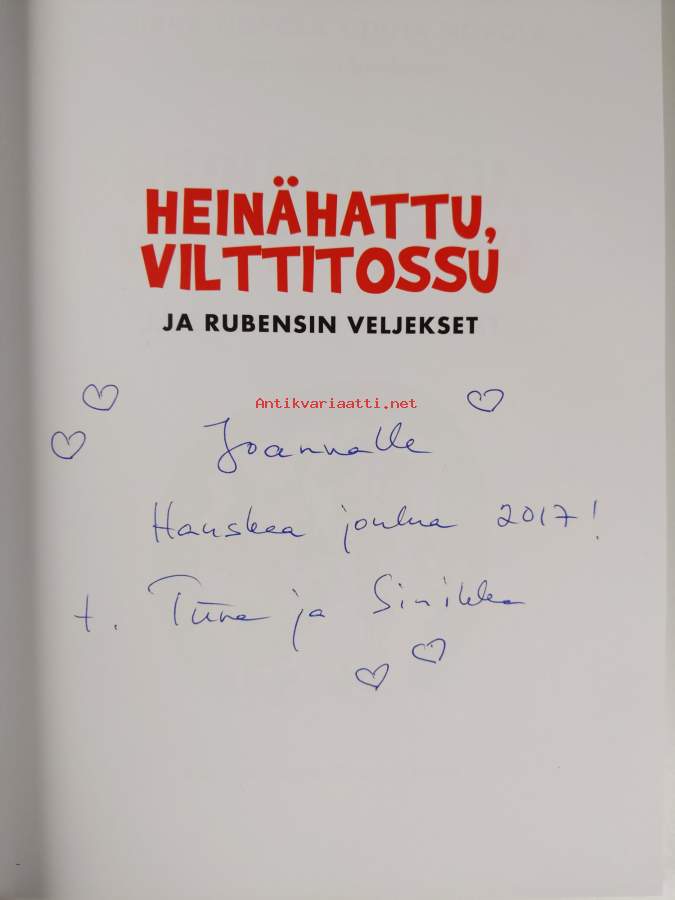 HEINÄHATTU,
VILTTITOSSU
JA RUBENSIN VELJEKSET
Antikvariaatti.net
Joannalle
Hauskaa joulua 2017!
t. Tiina ja Sinikka